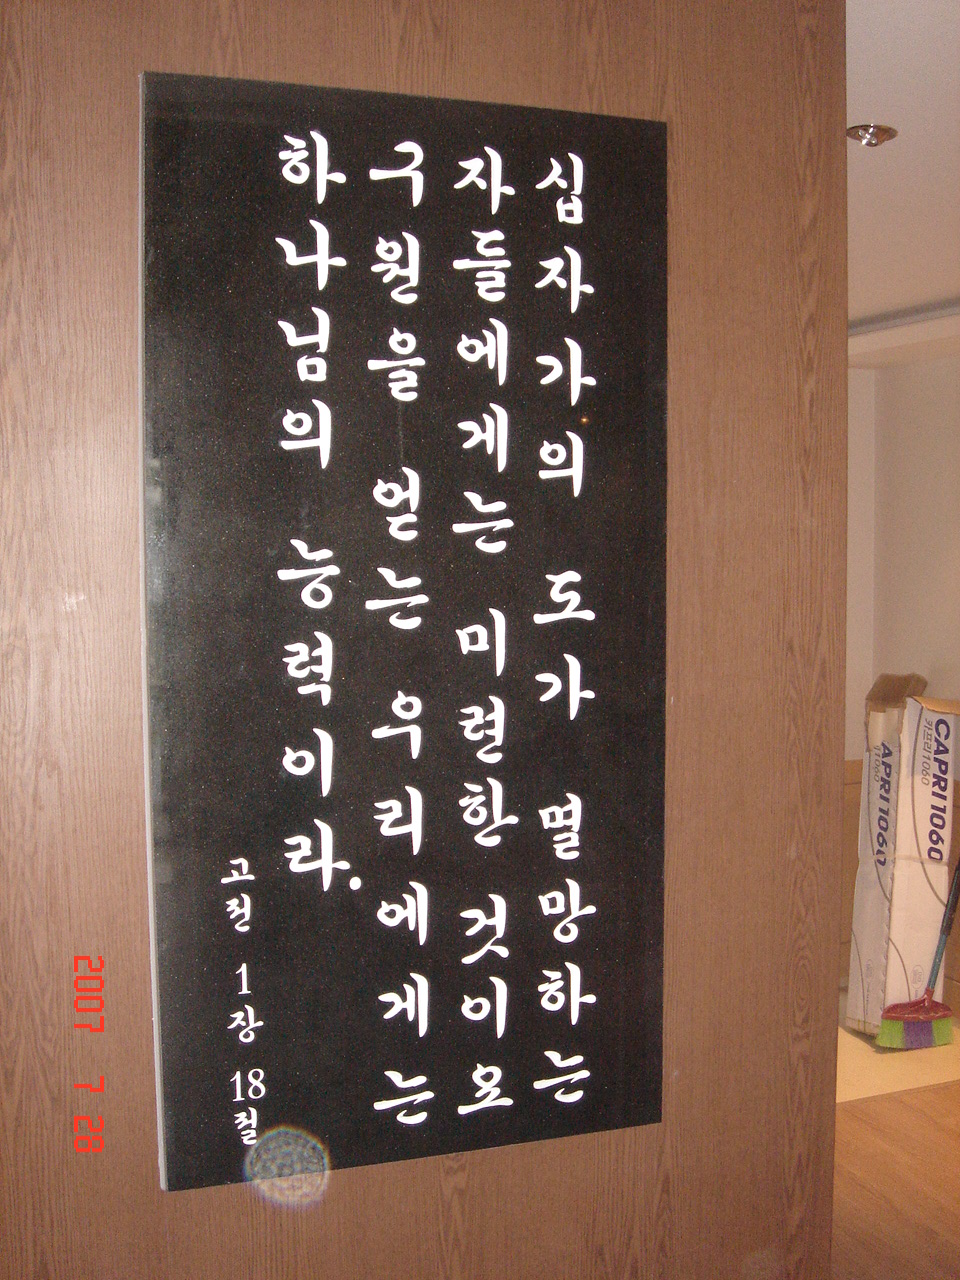 십자가의 도가 멸망하는
자들에게는 미련한 것이요
구원을 얻는 우리에게는
하나님의 능력이라.
고전 1장 18절
CAPRI 1060
카프리 1060
APRI 1060
2007 7 28